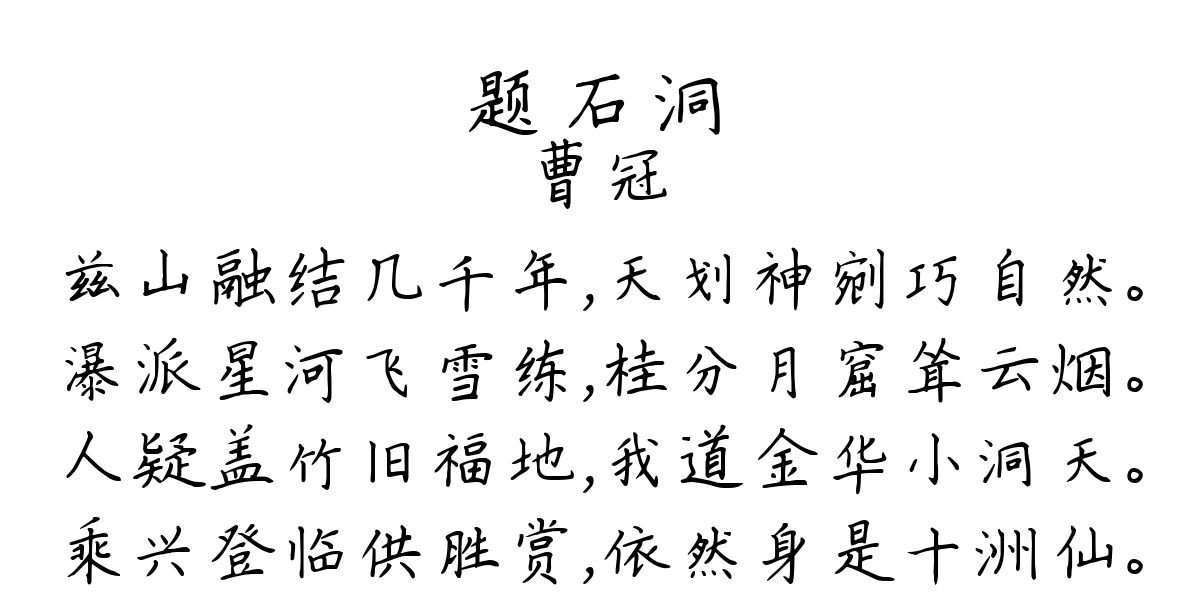 题石洞
曹冠
兹山融结几千年,天划神剜巧自然。
瀑派星河飞雪练,桂分月窟耸云烟。
人疑盖竹旧福地,我道金华小洞天。
乘兴登临供胜赏,依然身是十洲仙。